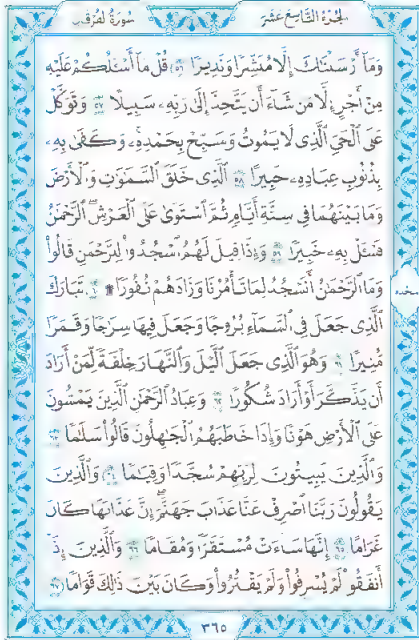 الجزء التاسع عشر
سورة الفرقان
وَمَآ أَرْسَلْنَٰكَ إِلَّا مُبَشِّرًا وَنَذِيرًا ٥٦ قُلْ مَآ أَسْـَٔلُكُمْ عَلَيْهِ
مِنْ أَجْرٍ إِلَّا مَن شَآءَ أَن يَتَّخِذَ إِلَىٰ رَبِّهِۦ سَبِيلًا ٥٧ وَتَوَكَّلْ
عَلَى ٱلْحَىِّ ٱلَّذِى لَا يَمُوتُ وَسَبِّحْ بِحَمْدِهِۦ وَكَفَىٰ بِهِۦ
بِذُنُوبِ عِبَادِهِۦ خَبِيرًا ٥٨ ٱلَّذِى خَلَقَ ٱلسَّمَٰوَٰتِ وَٱلْأَرْضَ
وَمَا بَيْنَهُمَا فِى سِتَّةِ أَيَّامٍ ثُمَّ ٱسْتَوَىٰ عَلَى ٱلْعَرْشِ ۚ ٱلرَّحْمَٰنُ
فَسْـَٔلْ بِهِۦ خَبِيرًا ٥٩ وَإِذَا قِيلَ لَهُمُ ٱسْجُدُوا۟ لِلرَّحْمَٰنِ قَالُوا۟
وَمَا ٱلرَّحْمَٰنُ أَنَسْجُدُ لِمَا تَأْمُرُنَا وَزَادَهُمْ نُفُورًا ۩ ٦٠ تَبَارَكَ
سجدة
ٱلَّذِى جَعَلَ فِى ٱلسَّمَآءِ بُرُوجًا وَجَعَلَ فِيهَا سِرَٰجًا وَقَمَرًا
مُّنِيرًا ٦١ وَهُوَ ٱلَّذِى جَعَلَ ٱلَّيْلَ وَٱلنَّهَارَ خِلْفَةً لِّمَنْ أَرَادَ
أَن يَذَّكَّرَ أَوْ أَرَادَ شُكُورًا ٦٢ وَعِبَادُ ٱلرَّحْمَٰنِ ٱلَّذِينَ يَمْشُونَ
عَلَى ٱلْأَرْضِ هَوْنًا وَإِذَا خَاطَبَهُمُ ٱلْجَٰهِلُونَ قَالُوا۟ سَلَٰمًا ٦٣
وَٱلَّذِينَ يَبِيتُونَ لِرَبِّهِمْ سُجَّدًا وَقِيَٰمًا ٦٤ وَٱلَّذِينَ
يَقُولُونَ رَبَّنَا ٱصْرِفْ عَنَّا عَذَابَ جَهَنَّمَ ۖ إِنَّ عَذَابَهَا كَانَ
غَرَامًا ٦٥ إِنَّهَا سَآءَتْ مُسْتَقَرًّا وَمُقَامًا ٦٦ وَٱلَّذِينَ إِذَآ
أَنفَقُوا۟ لَمْ يُسْرِفُوا۟ وَلَمْ يَقْتُرُوا۟ وَكَانَ بَيْنَ ذَٰلِكَ قَوَامًا ٦٧
٣٦٥